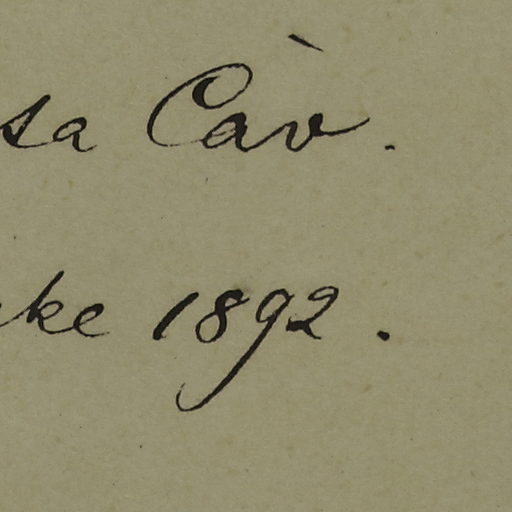 sa Càv.
ke 1892.